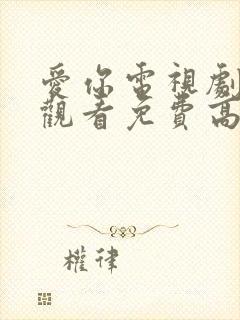 愛你電視劇
觀看免費高
權律